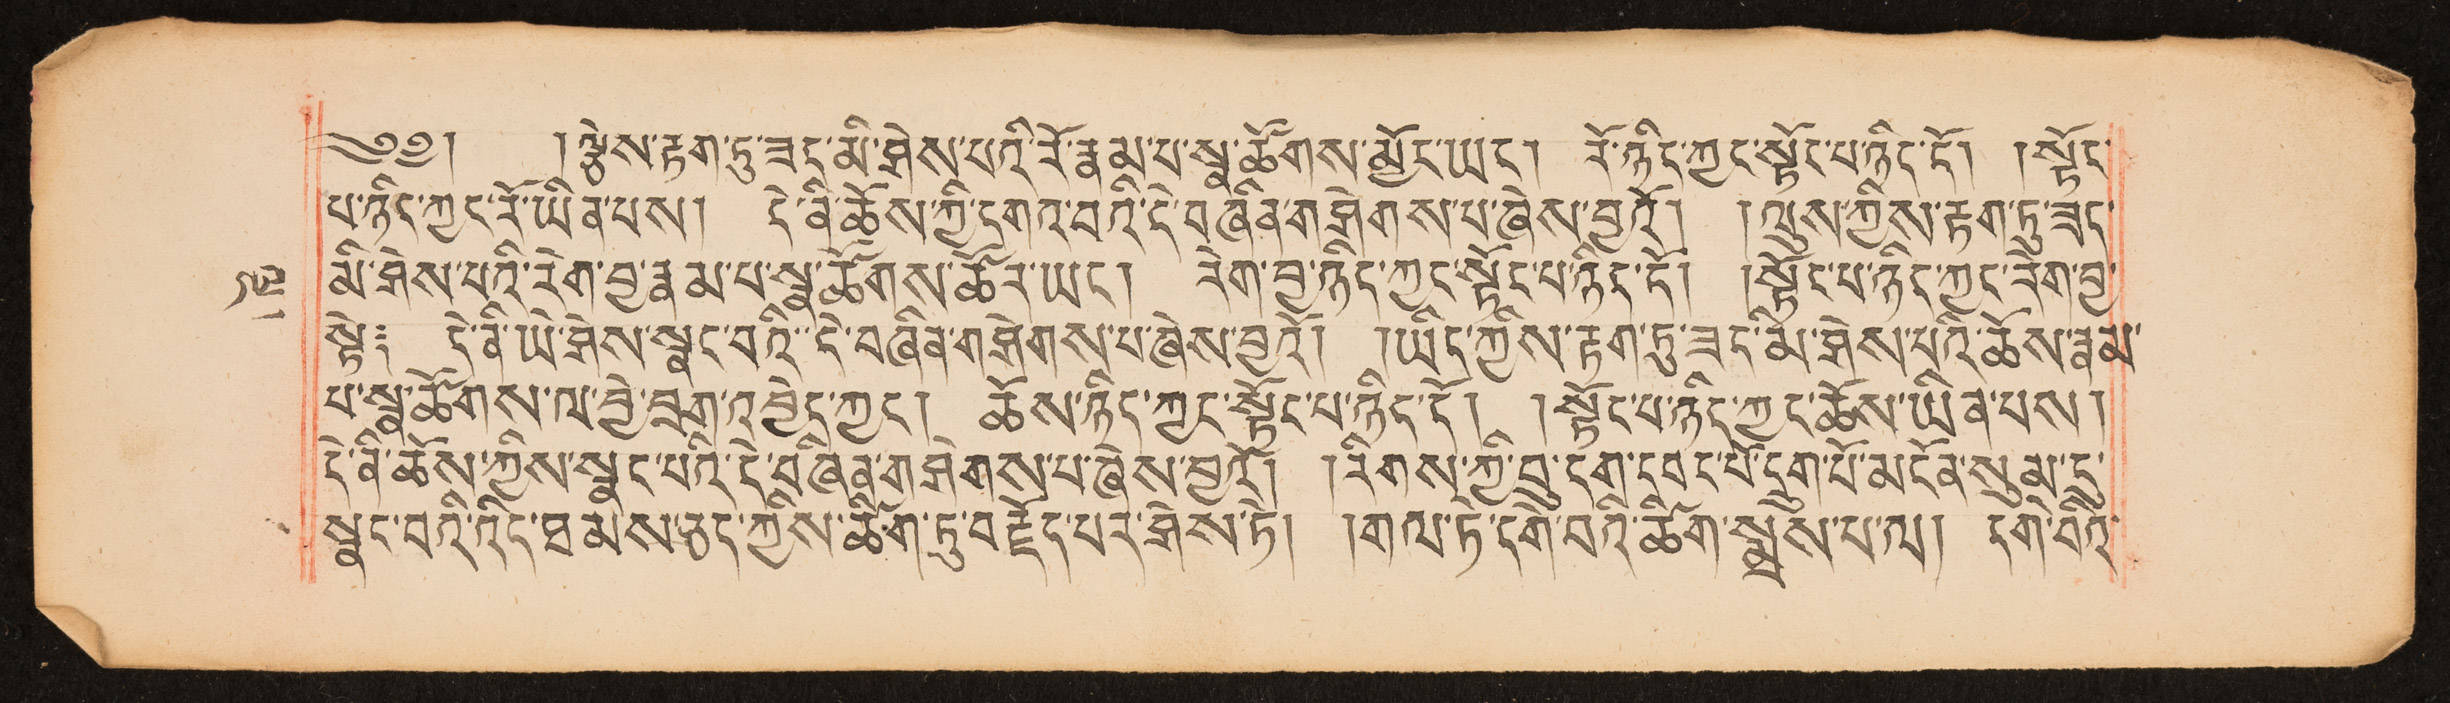 ༄༅། །ལྕེས་རྟག་ཏུ་ཟད་མི་ཤེས་པའི་རོ་རྣམ་པ་སྣ་ཚོགས་མྱོང་ཡང། རོ་ཉིད་ཀྱང་སྟོང་པ་ཉིད་དོ། །སྟོང་
པ་ཉིད་ཀྱང་རོ་ཡིན་པས། དེ་ནི་ཆོས་ཀྱི་དགའ་བའི་དེ་བཞིན་གཤེགས་པ་ཞེས་བྱའོ། །ལུས་ཀྱིས་རྟག་ཏུ་ཟད་
མི་ཤེས་པའི་རེག་བྱ་རྣམ་པ་སྣ་ཚོགས་ཚོར་ཡང། རེག་བྱ་ཉིད་ཀྱང་སྟོང་པ་ཉིད་དོ། །སྟོང་པ་ཉིད་ཀྱང་རེག་བྱ་
སྟེ༔ དེ་ནི་ཡེ་ཤེས་སྣང་བའི་དེ་བཞིན་གཤེགས་པ་ཞེས་བྱའོ། །ཡིད་ཀྱིས་རྟག་ཏུ་ཟད་མི་ཤེས་པའི་ཆོས་རྣམ་
པ་སྣ་ཚོགས་ལ་བྱེ་བྲག་འབྱེད་ཀྱང། ཆོས་ཉིད་ཀྱང་སྟོང་པ་ཉིད་དོ། །སྟོང་པ་ཉིད་ཀྱང་ཆོས་ཡིན་པས།
དེ་ནི་ཆོས་ཀྱིས་སྣང་པའི་དེ་བཞིན་གཤེགས་པ་ཞེས་བྱའོ། །རིགས་ཀྱི་བུ་དག་དབང་པོ་དྲུག་པོ་མངོན་སུམ་དུ་
སྣང་བའི་འདི་ཐམས་ཅད་ཀྱིས་ཚིག་ཏུ་བརྗོད་པར་ཤེས་ཏེ། །གལ་ཏེ་དགེ་བའི་ཚིག་སྨྲས་པ་ལ། དགེ་བའི་